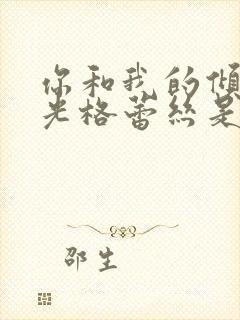 你和我的傾
光格蕾丝是
邵生